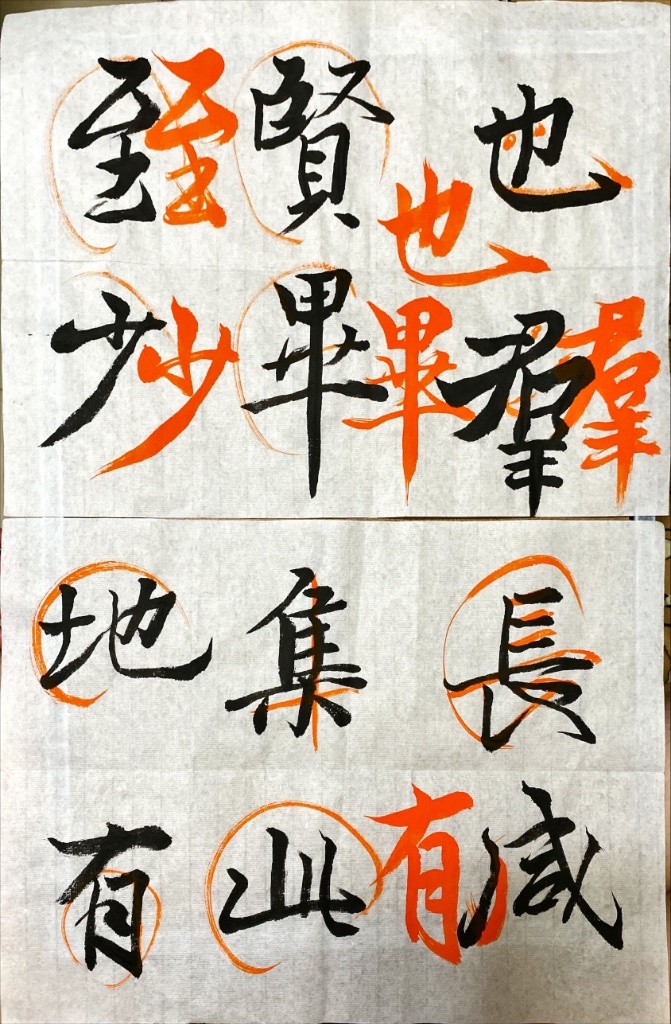 也羣
羣
也畢
賢畢
至少
至少
長咸
有
集此
地有